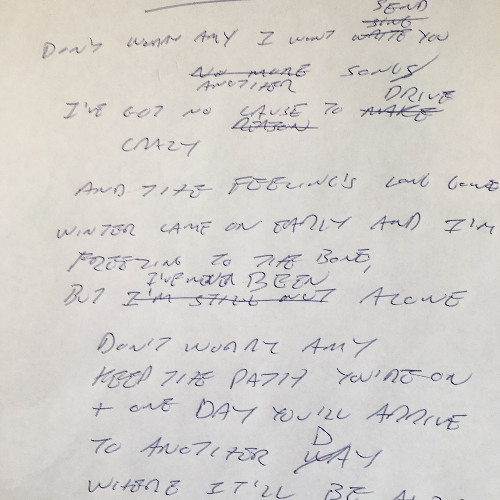 SEND
SING
DON'T WORRY AMY I WON'T WRITE YOU
NO MORE SONGS
ANOTHER DRIVE
I'VE GOT NO CAUSE TO MAKE
REASON
CRAZY
AND THE FEELING'S LONG GONE
WINTER CAME ON EARLY AND I'M
FREEZING TO THE BONE,
I'VE NEVER BEEN
BUT I'M STILL NOT ALONE
DON'T WORRY AMY
KEEP THE PATH YOU'RE ON
+ ONE DAY YOU'LL ARRIVE
TO ANOTHER WAY
D
WHERE IT'LL BE